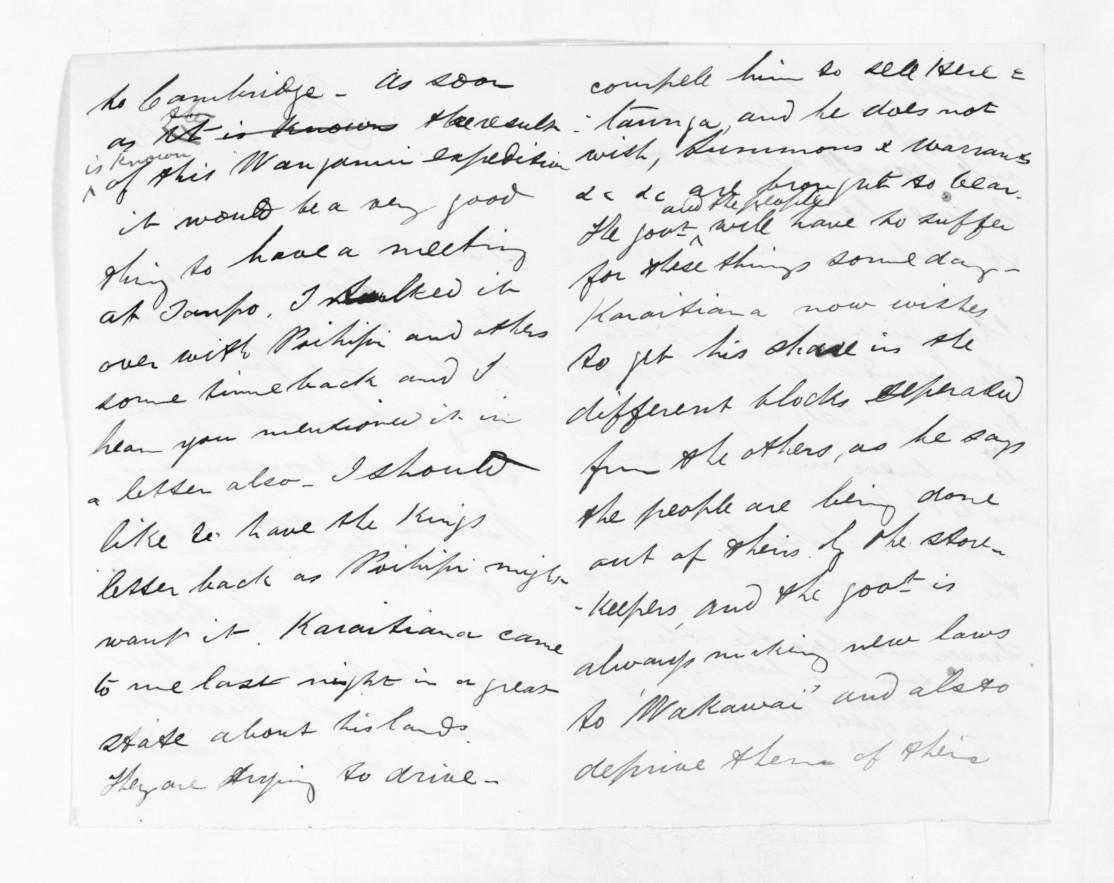 to Cambridge - As soon
as the It is known the result
is known
of this Wanganui expedition
it would be a very good
thing to have a meeting
at Taupo. I talked it
over with Poihipi and others
some time back and I
hear you mentioned it in
a letter also - I should
like to have the Kings
letter back as Poihipi might
want it. Karaitiana came
to me last night in a great
state about his lands.
They are trying to drive -
compell him to sell Here =
- taunga, and he does not
wish, Summons & Warrants
&c &c are brought to bear.
and the people
The govt will have to suffer
for these things some day -
Karaitiana now wishes
to get his share in the
different blocks seperated
from the others, as he says
the people are being done
out of theirs by the store-
-keepers, and the govt is
always making new laws
to 'Wakawai' and also to
deprive them of their